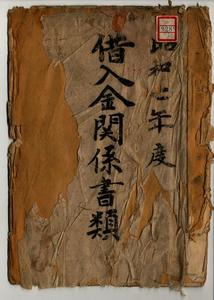 昭和二年度
借入金関係書類